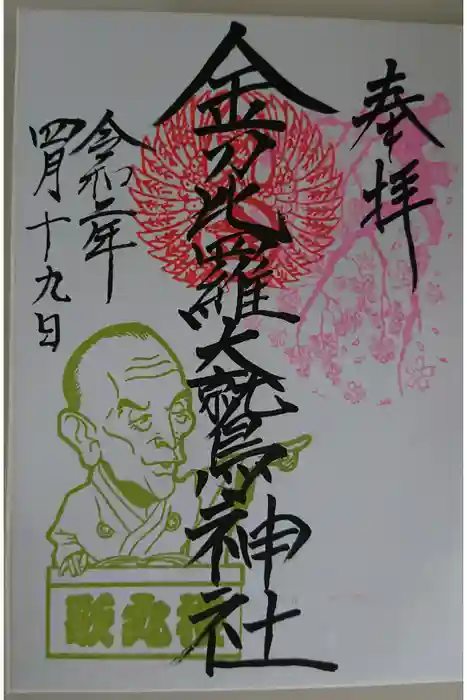 奉拝
金刀比羅大鷲神社
令和二年
四月十九日
歌丸